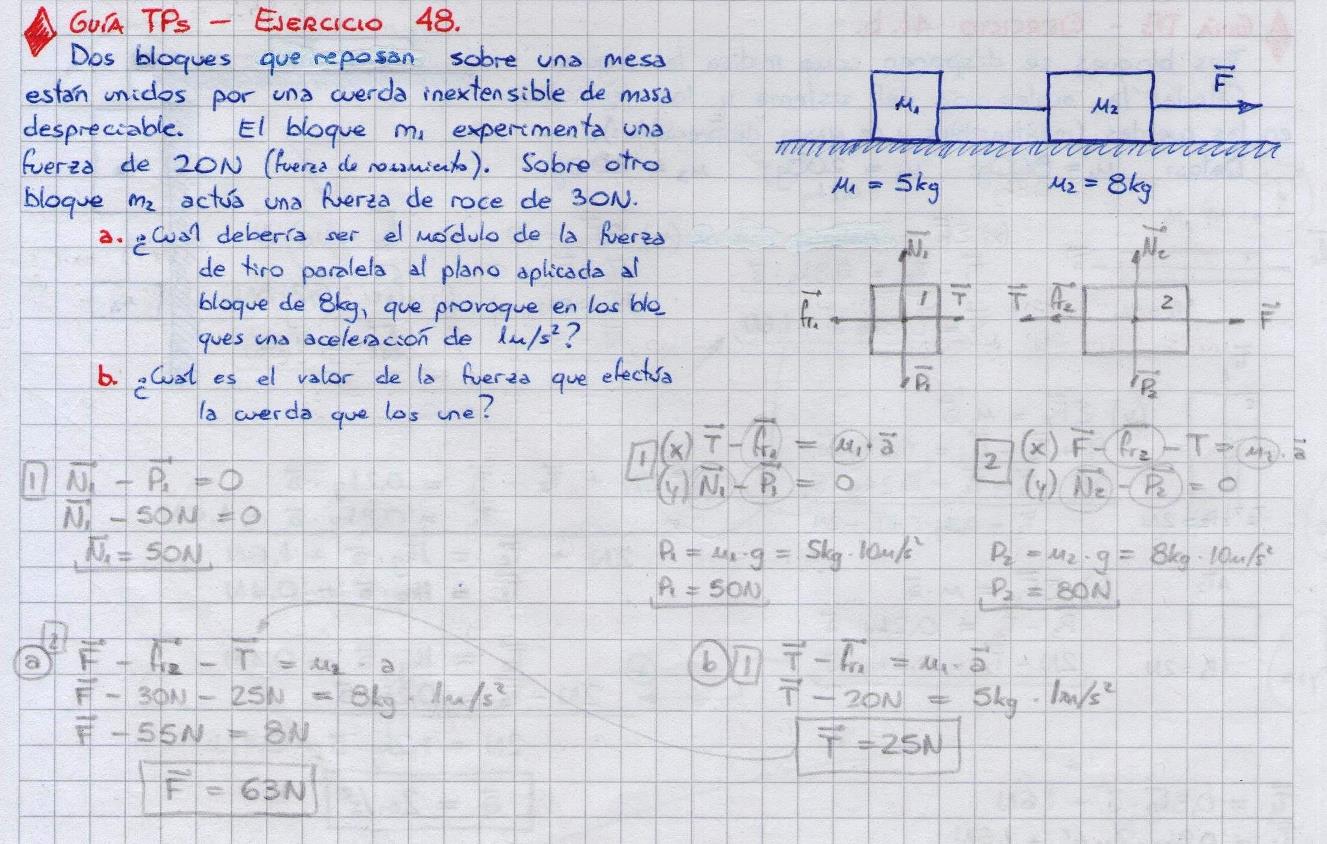 GUÍA TPs — EJERCICIO 48.
Dos bloques que reposan sobre una mesa
están unidos por una cuerda inextensible de masa
despreciable. El bloque m₁ experimenta una
fuerza de 20N (fuerza de rozamiento). Sobre otro
bloque m₂ actúa una fuerza de roce de 30N.
a. ¿Cual debería ser el módulo de la fuerza
de tiro paralela al plano aplicada al
bloque de 8kg, que provoque en los blo
ques una aceleración de 1m/s²?
b. ¿Cual es el valor de la fuerza que efectúa
la cuerda que los une?
M₁ M₂ F⃗
M₁ = 5kg M₂ = 8kg
N⃗₁ N⃗₂
fr₁ 1 T⃗ T⃗ fr₂ 2 F⃗
P⃗₁ P⃗₂
1 (x) T⃗ - f⃗r₁ = m₁·a⃗
(y) N⃗₁ - P⃗₁ = 0
2 (x) F⃗ - f⃗r₂ - T = m₂·a⃗
(y) N⃗₂ - P⃗₂ = 0
1 N⃗₁ - P⃗₁ = 0
N⃗₁ - 50N = 0
N⃗₁ = 50N
P₁ = m₁·g = 5kg·10m/s²
P₁ = 50N
P₂ = m₂·g = 8kg·10m/s²
P₂ = 80N
a 2 F⃗ - f⃗r₂ - T⃗ = m₂·a
F⃗ - 30N - 25N = 8kg·1m/s²
F⃗ - 55N = 8N
F⃗ = 63N
b 1 T⃗ - f⃗r₁ = m₁·a⃗
T⃗ - 20N = 5kg·1m/s²
T⃗ = 25N